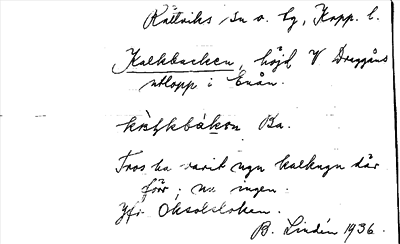 Rättviks sn o. tg, Kopp. l.
Kalkbacken, höjd V Draggåns
utlopp i Enån.
Ba.
Tros ha varit ngn kalkugn där
förr; nu ingen.
Jfr Oksolsloken.
B. Lindén 1936.